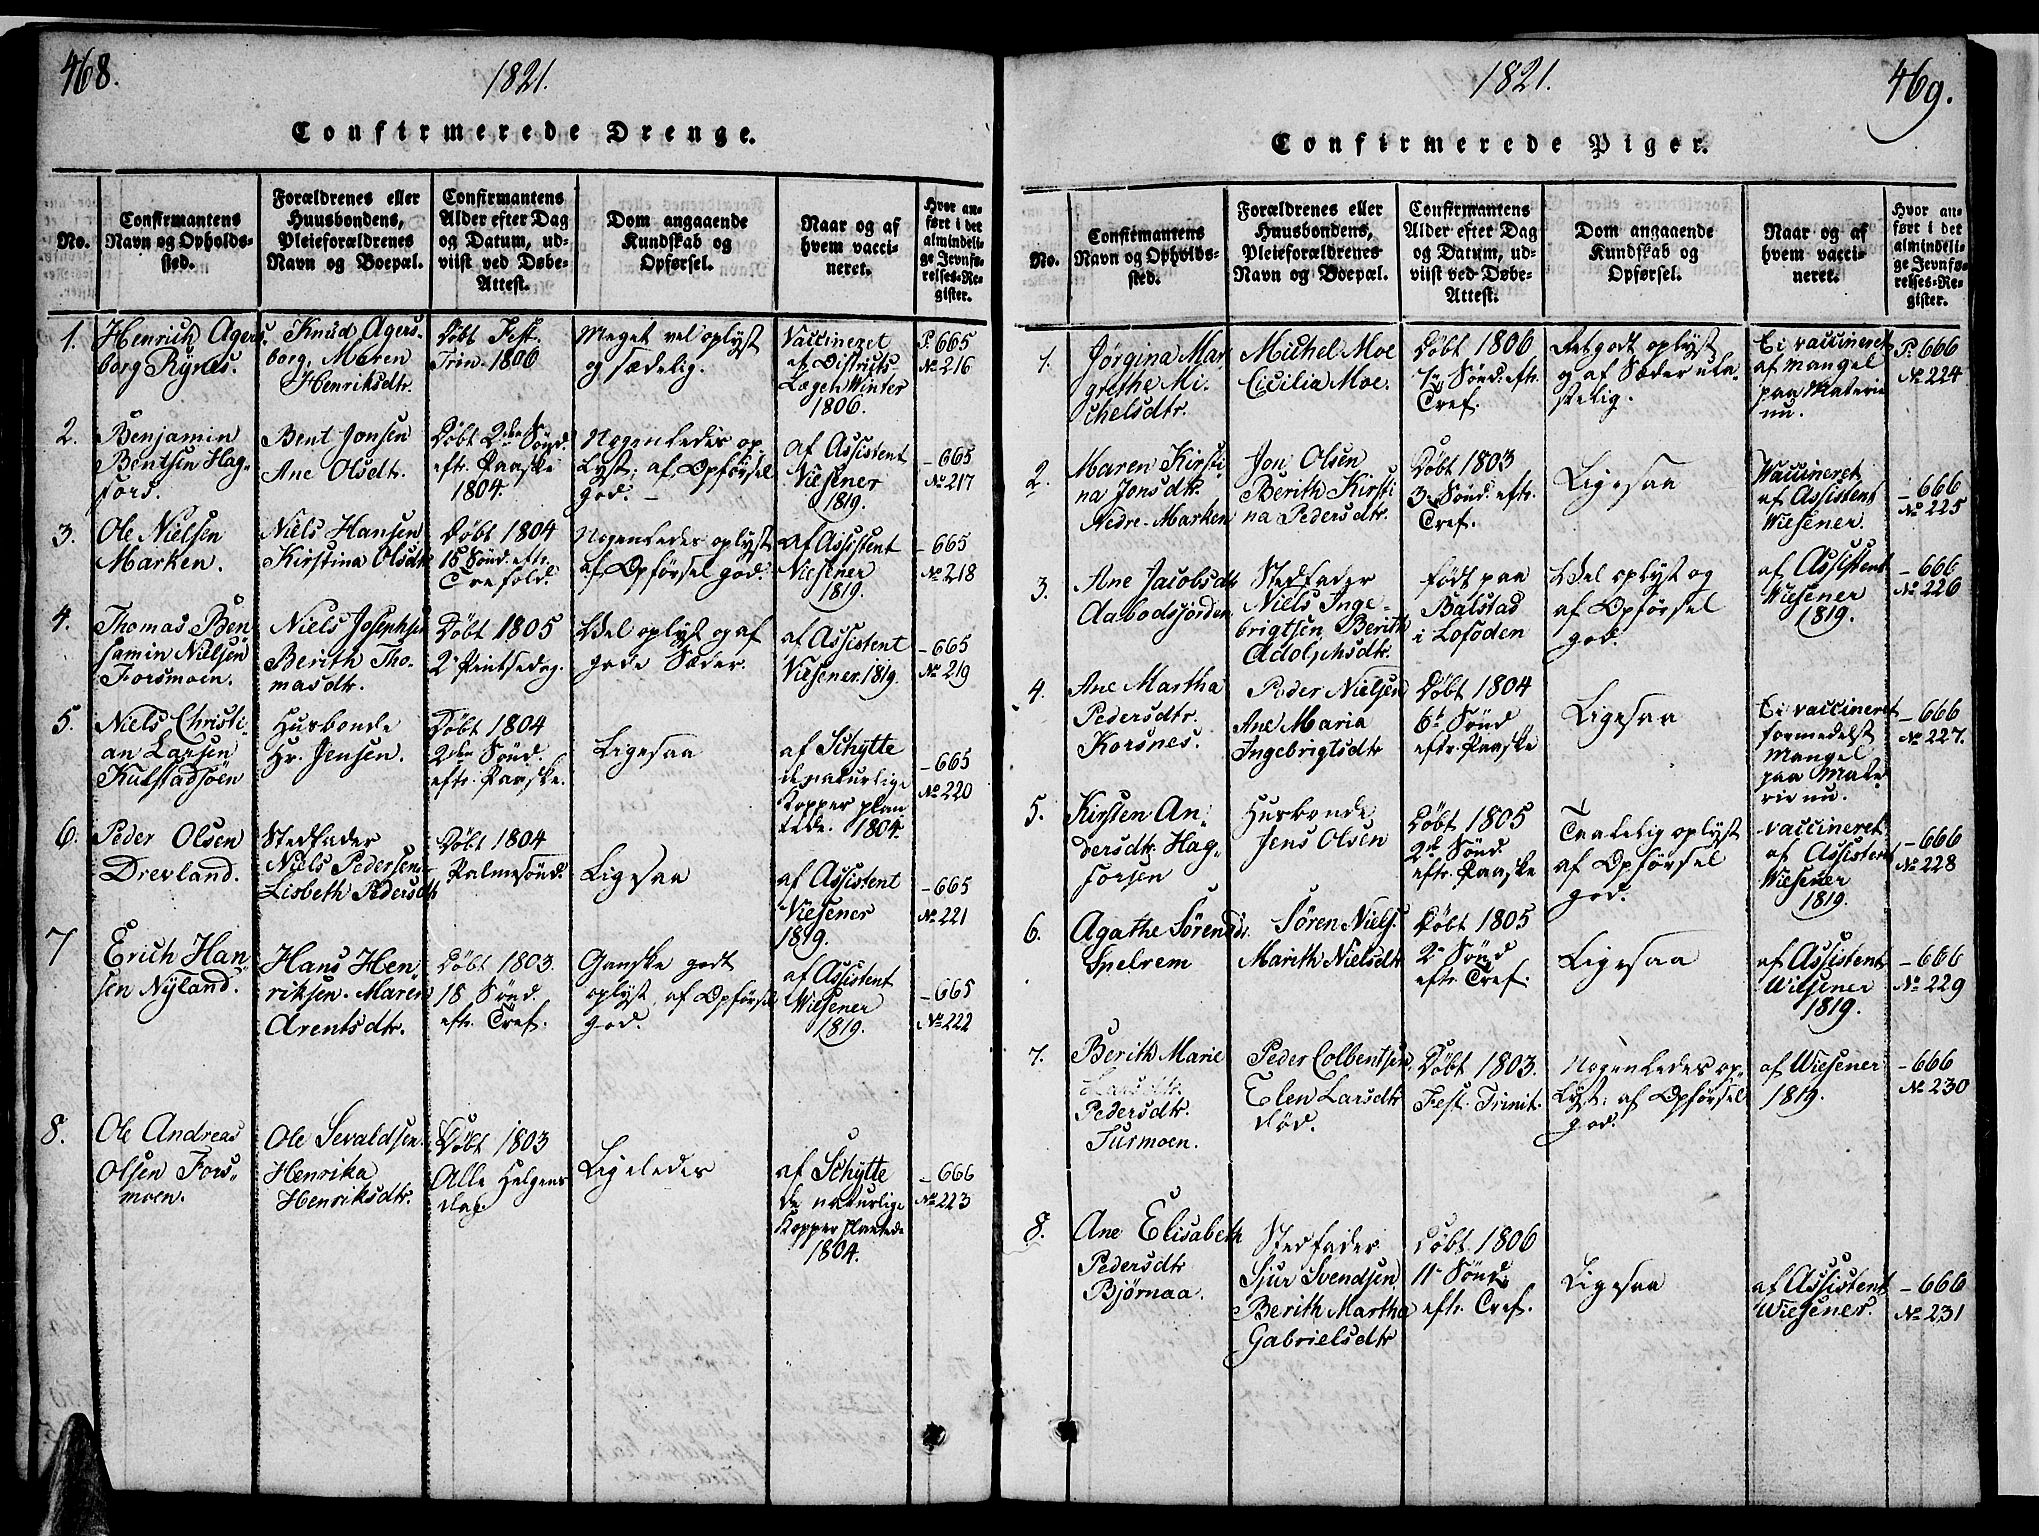 468.
1821.
Confirmerede Drenge.
No.
Confirmantens
Navn og Opholds-
sted.
Forældrenes eller
Huusbondens,
Pleieforældrenes
Navn og Boepæl.
Confirmantens
Alder efter Dag
og Datum, ud-
viist ved Døbe-
Attest.
Dom angaaende
Kundskab og
Opførsel.
Naar og af
hvem vacci-
neret.
Hvor an-
ført i det
almindeli-
ge Jevnfø-
relses-Re-
gister.
1.
Henrich Agers-
borg Rynes.
Knud Agers-
borg, Maren
Henriksdtr.
Døbt Fest.
Trin. 1806
Meget vel oplyst
og sædelig.
Vaccineret
af Districts
Lægen Winter
1806.
P. 665
No 216
2.
Benjamin
Bentsen Hag-
fors.
Bent Jonsen
Ane Olsdtr.
Døbt 2den Sønd.
eftr. Paaske
1804.
Nogenledes op-
lyst; af Opførsel
god. -
af Assistent
Wiesener
1819.
- 665
No 217
3.
Ole Nielsen
Marken.
Niels Hansen
Kirstina Olsdtr
Døbt 1804
18 Sønd. eftr.
Trefold.
Nogenledes oplyst
af Opførsel god.
af Assistent
Wiesener
1819.
- 665
No 218
4.
Thomas Ben-
jamin Nielsen
Forsmoen.
Niels Josephsen
Berith Tho-
masdtr.
Døbt 1805
2. Pintsedag.
Vel oplyst og af
gode Sæder.
af Assistent
Wiesener. 1819.
- 665
No 219
5.
Niels Christi-
an Larsen
Kulstadsøen
Husbonde
Hr. Jensen.
Døbt 1804
2den Sønd.
eftr. Paaske.
Ligesaa
af Schytte
de naturlige
Kopper plan
tede. 1804.
- 665
No 220
6.
Peder Olsen
Drevland.
Stedfader
Niels Pedersen
Lisbeth Pedersdtr
Døbt 1804
Palmesønd.
Ligesaa
af Assistent
Wiesener
1819.
- 665
No 221
7
Erich Han-
sen Nyland.
Hans Hen-
riksen. Maren
Arentsdtr.
Døbt 1803.
18 Sønd.
eftr. Tref.
Ganske godt
oplyst, af Opførsel
god.
af Assistent
Wiesener
1819.
- 665
No 222
8.
Ole Andreas
Olsen Fors-
moen.
Ole Sevaldsen
Henrika
Henriksdtr.
Døbt 1803
Alle Helgens
dag.
Ligeledes
af Schytte
de naturlige
Kopper plantede
1804.
- 666
No 223
1821.
469.
Confirmerede Piger.
No.
Confirmantens
Navn og Opholds-
sted.
Forældrenes eller
Huusbondens,
Pleieforældrenes
Navn og Boepæl.
Confirmantens
Alder efter Dag
og Datum, ud-
viist ved Døbe-
Attest.
Dom angaaende
Kundskab og
Opførsel.
Naar og af
hvem vacci-
neret.
Hvor an-
ført i det
almindeli-
ge Jevnfø-
relses-Re-
gister.
1.
Jørgina Mar-
grethe Mi-
chelsdtr.
Michel Moe
Cicilia Moe.
Døbt 1806
Sønd. eftr.
Tref.
Ret godt oplyst
og af Sæder ula-
stelig.
Ei vaccineret
af Mangel
paa Materie
nu.
P. 666
No 224
2.
Maren Kirsti
na Jonsdtr.
Nedre-Marken
Jon Olsen
Berith Kirsti
na Pedersdtr.
Døbt 1803
3. Sønd. eftr.
Tref.
Ligesaa
Vaccineret
af Assistent
Wiesener.
- 666
No 225
3.
Ane Jacobsdtr
Aabodsjorden
Stedfader
Niels Inge-
brigtsen, Berith
Adolphsdtr.
født paa
Balstad
i Lofoden
Vel oplyst og
af Opførsel
god.
af Assistent
Wiesener
1819.
- 666
No 226
4.
Ane Martha
Pedersdtr.
Korsnes.
Peder Nielsen
Ane Maria
Ingebrigtsdtr
Døbt 1804
6te Sønd
eftr. Paaske
Ligesaa
Ei vaccineret
formedelst
Mangel
paa Mate
rie nu.
- 666
No 227.
5.
Kirsten An-
dersdtr. Hag-
forsen
Husbonde
Jens Olsen
Døbt 1805
2den Sønd
eftr. Paaske
Taalelig oplyst
af Opførsel
god.
vaccineret
af Assistent
Wiesener
1819.
- 666
No 228
6.
Agathe Sørensdr.
Spelrem
Søren Niels.
Marith Nielsdtr
Døbt 1805
2. Sønd
eftr. Tref.
Ligesaa
af Assistent
Wiesener
1819.
- 666
No 229
7.
Berith Marie
Pedersdtr.
Turmoen.
Peder Colbentsen
Elen Larsdtr
død.
Døbt 1803.
Fest. Trinit.
Nogenledes op-
lyst: af Opførsel
god.
af Wiesener
1819.
- 666
No 230
8.
Ane Elisabeth
Pedersdtr
Bjørnaa.
Stedfader
Sjur Svendsen
Berith Martha
Gabrielsdtr
Døbt 1806
11. Sønd.
eftr. Tref.
Ligesaa
af Assistent
Wiesener.
- 666
No 231